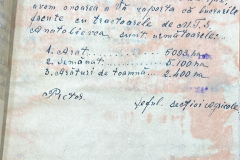 avem onoarea a Vă raporta că lucrările
făcute cu tractoarele de M.T.S.
Anatolierea sunt următoarele:
1. Arat. 5083 ha
2. Semănat. 5.100 ha
3. Arături de toamnă. 2.400 ha
Șeful secției agricole